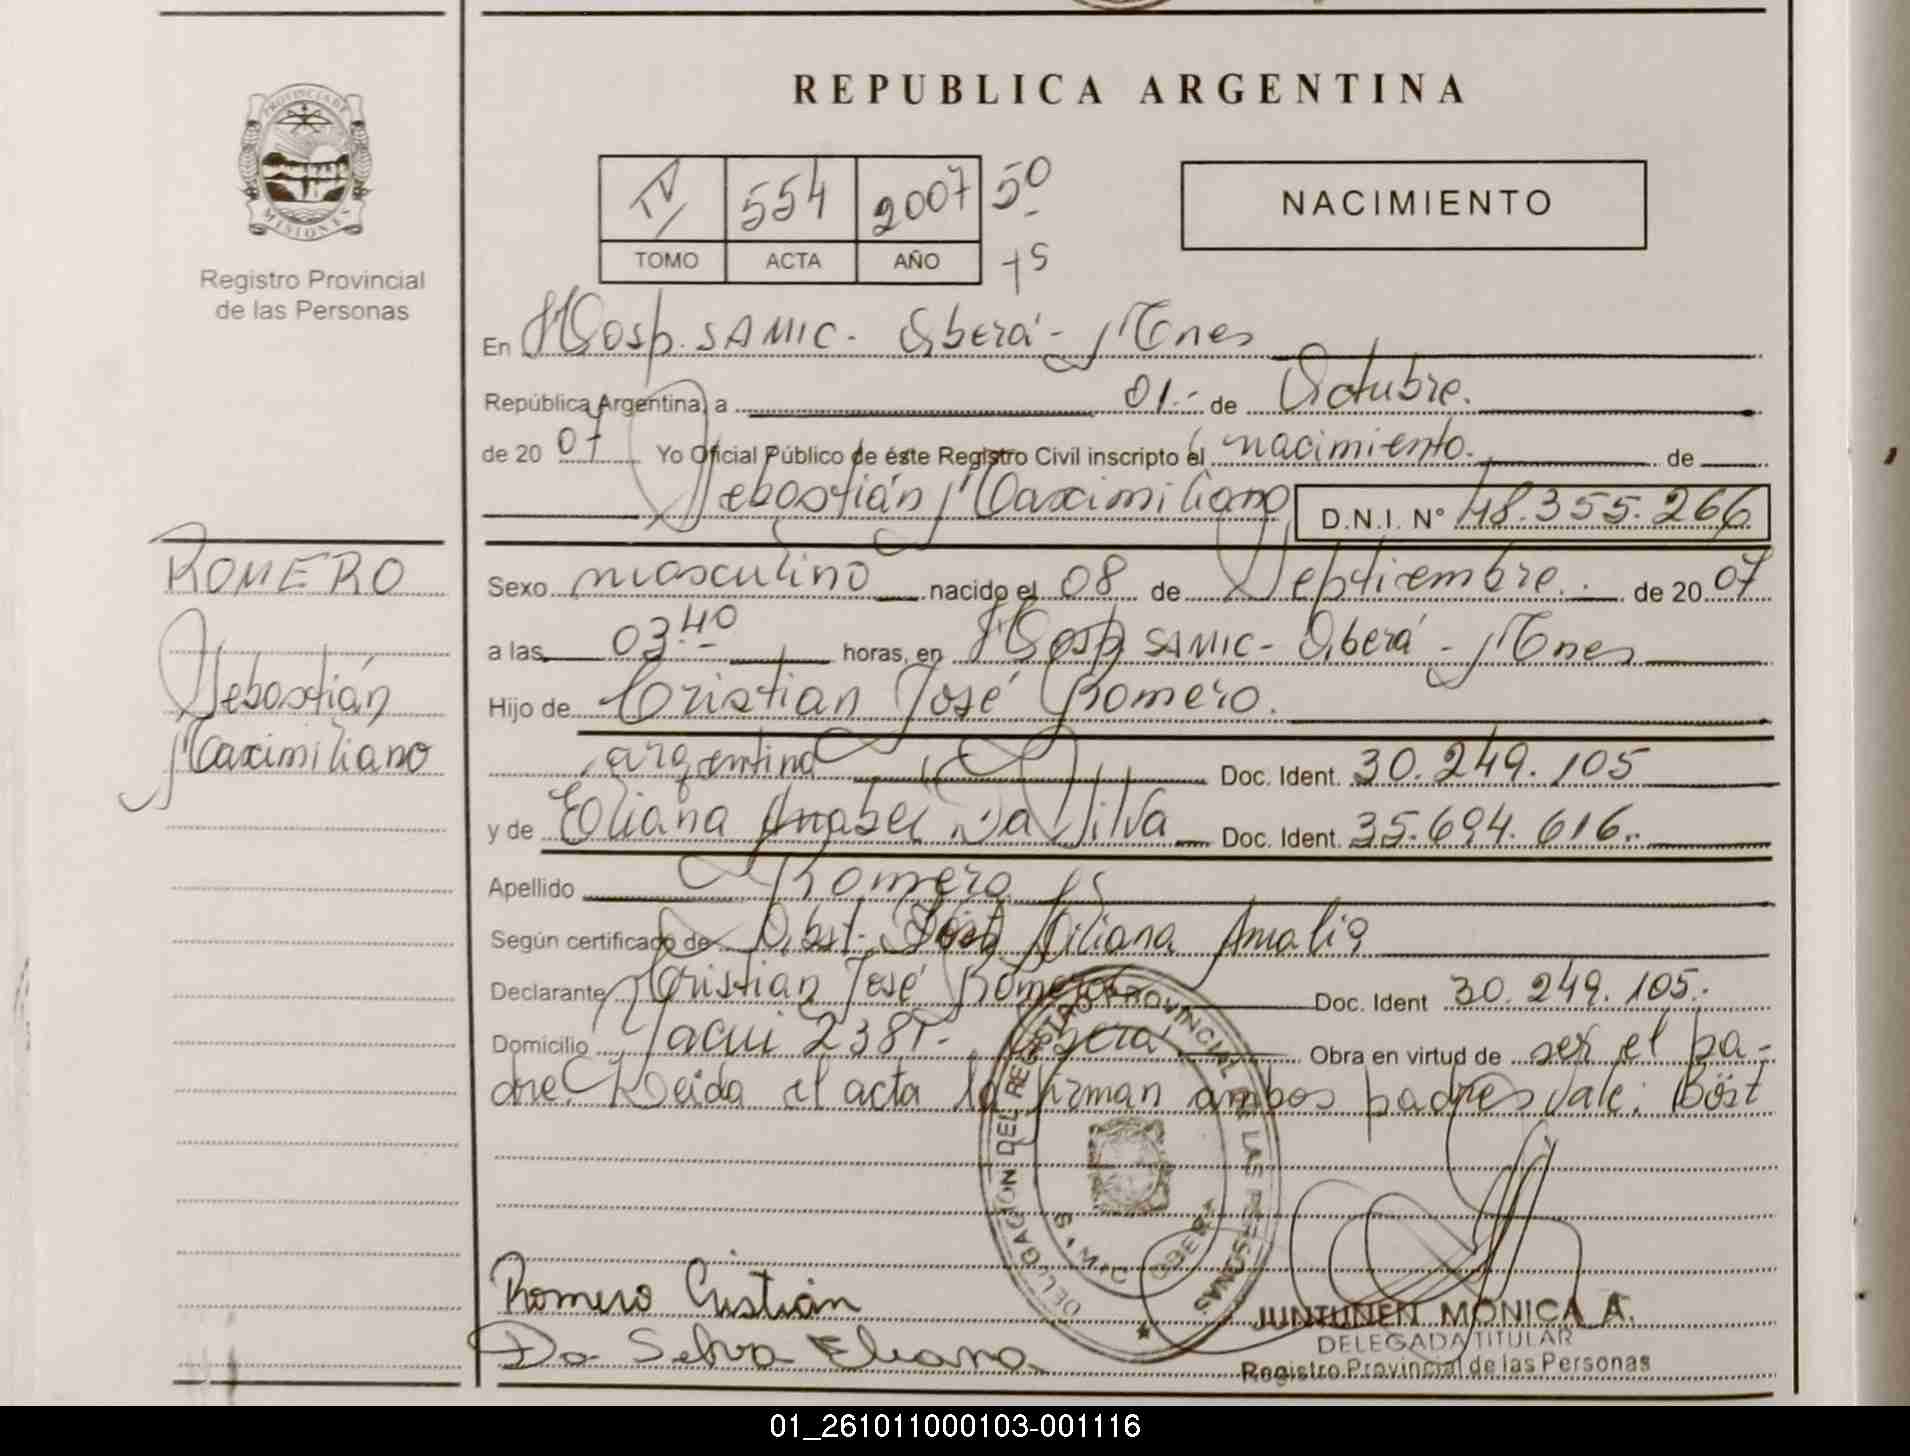 REPUBLICA ARGENTINA
PROVINCIA DE MISIONES
Registro Provincial
de las Personas
IV 554 2007 50
TOMO ACTA AÑO
NACIMIENTO
En Hosp. SAMIC - Oberá - Mnes
República Argentina, a 01.- de Octubre.
de 20 07 Yo Oficial Público de éste Registro Civil inscripto el nacimiento. de
Sebastián Maximiliano D.N.I. Nº 48.355.266
ROMERO
Sebastián
Maximiliano
Sexo masculino nacido el 08 de Septiembre. de 20 07
a las 03.40 horas, en Hosp SAMIC - Oberá - Mnes
Hijo de Cristian José Romero.
argentina Doc. Ident. 30.249.105
y de Eliana Anabel Da Silva Doc. Ident. 35.694.616.
Apellido Romero
Según certificado de Obst. Liliana Amalia
Declarante Cristian José Romero Doc. Ident 30.249.105.
Domicilio Yacui 2381 - Oberá Obra en virtud de ser el pa-
dre. Leida el acta la firman ambos padres Vale: Böst
DELEGACION DEL REGISTRO PROVINCIAL DE LAS PERSONAS
OBERA
Romero Cristián
Da Silva Eliana
JUNTUNEN MONICA A.
DELEGADA TITULAR
Registro Provincial de las Personas
01_261011000103-001116